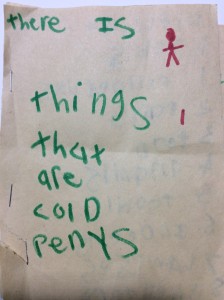 there IS
things
that
are
colD
penys